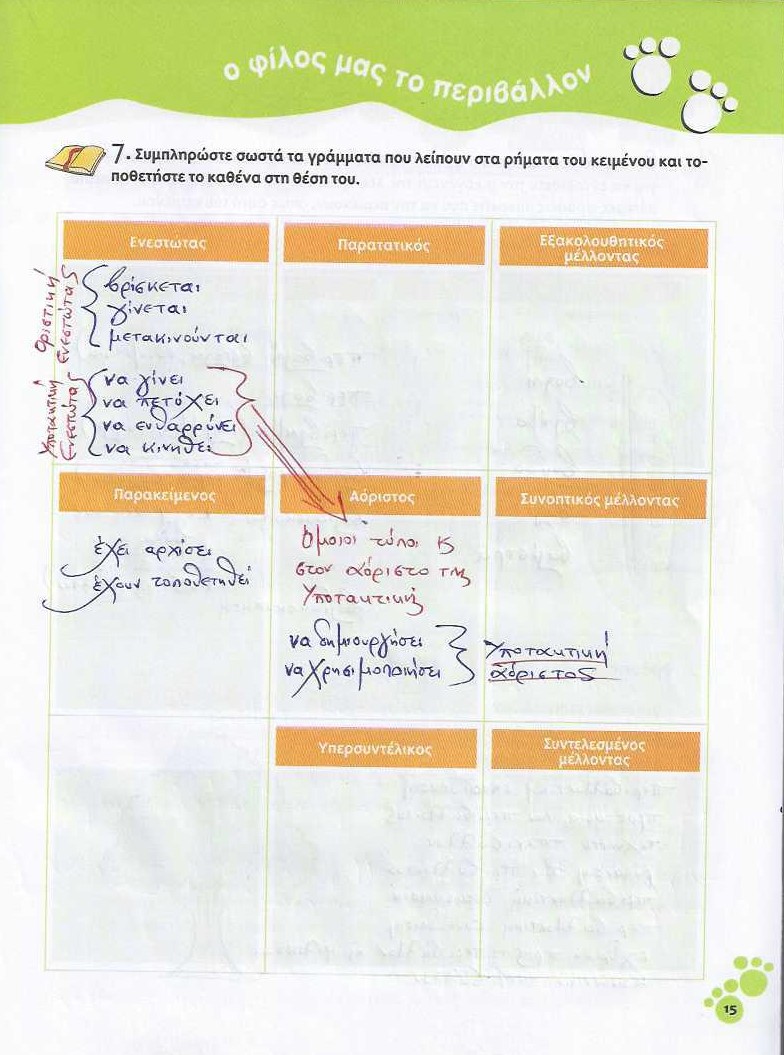 ο φίλος μας το περιβάλλον
7. Συμπληρώστε σωστά τα γράμματα που λείπουν στα ρήματα του κειμένου και το-
ποθετήστε το καθένα στη θέση του.
Ενεστώτας
Παρατατικός
Εξακολουθητικός
μέλλοντας
Οριστική
Ενεστώτας
βρίσκεται
γίνεται
μετακινούνται
Υποτακτική
Ενεστώτας
να γίνει
να πετύχει
να ενθαρρύνει
να κινηθεί
Παρακείμενος
Αόριστος
Συνοπτικός μέλλοντας
έχει αρχίσει
έχουν τοποθετηθεί
Όμοιοι τύποι κ
στον αόριστο της
Υποτακτική
να δημιουργήσει
να χρησιμοποιήσει
Υποτακτική
αόριστος
Υπερσυντέλικος
Συντελεσμένος
μέλλοντας
15